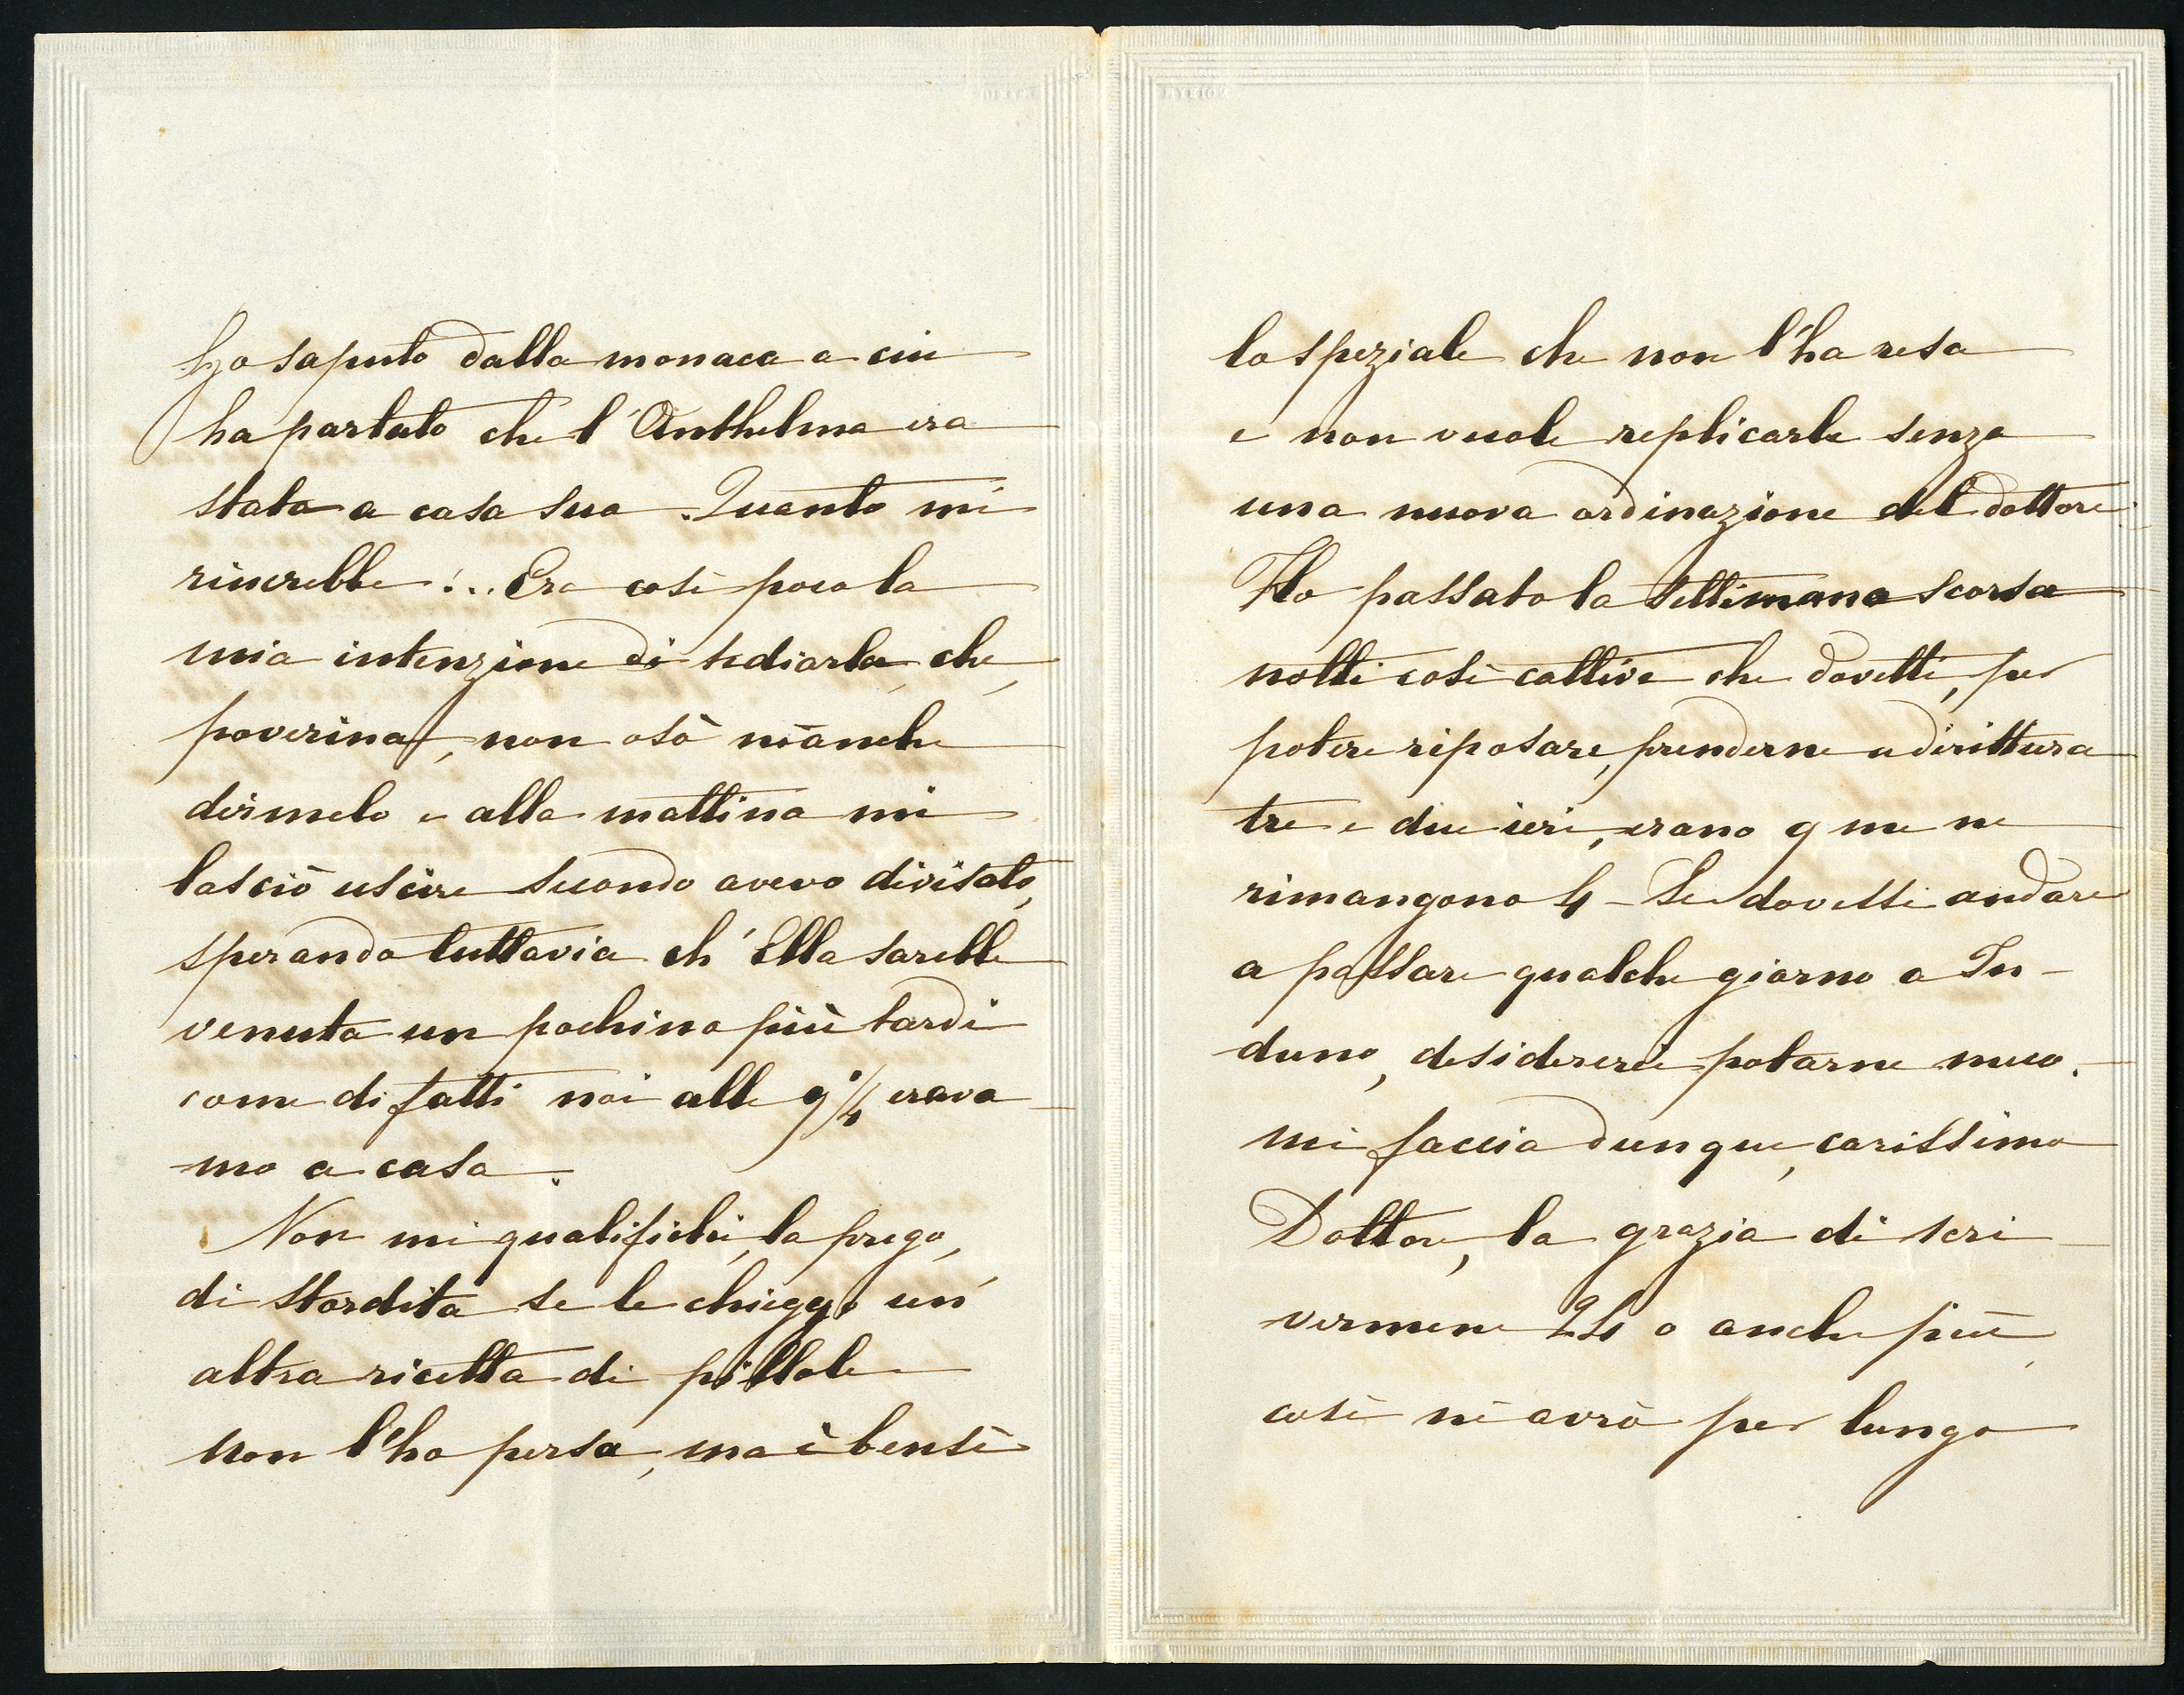 Ho saputo dalla monaca a cui
ha parlato che l'Anthelma era
stata a casa sua. Quanto mi
rincrebbe!.. Era così poco la
mia intenzione di tediarla, che,
poverina, non osò neanche
dirmelo e alla mattina mi
lasciò uscire secondo avevo divisato,
sperando tuttavia ch'Ella sarebbe
venuta un pochino più tardi
come difatti noi alle 9¼ erava
mo a casa.
Non mi qualifichi, la prego,
di stordita se le chieggo un'
altra ricetta di pillole
non l'ho persa, ma è bensì
lo speziale che non l'ha resa
e non vuole replicarle senza
una nuova ordinazione del dottore
Ho passato la settimana scorsa
notti così cattive che dovetti, per
potere riposare, prenderne addirittura
tre e due ieri, erano 9 me ne
rimangono 4 - Se dovessi andare
a passare qualche giorno a In-
duno, desidererei portarne meco.
mi faccia dunque, carissimo
Dottore, la grazia di scri
vermene 24 o anche più,
così ne avrò per lungo